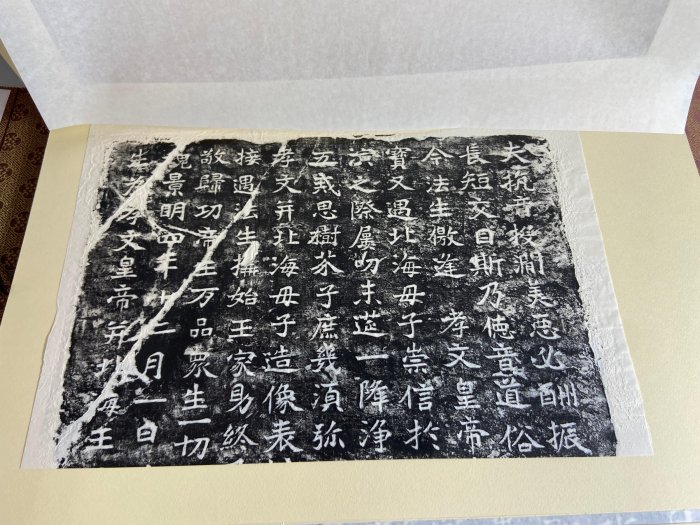 夫抗音投澗美惡必酬振
長短交目斯乃德音道俗
今法生儌逢 孝文皇帝
寶又遇北海母子崇信於
演之際屢叨末筵一降淨
五戒思樹芥子庶幾湏弥
孝文并北海母子造像表
接遇法生構始王家助終
敬歸功帝王万品眾生一切
魏景明四年十二月一日
生為孝文皇帝并北海王